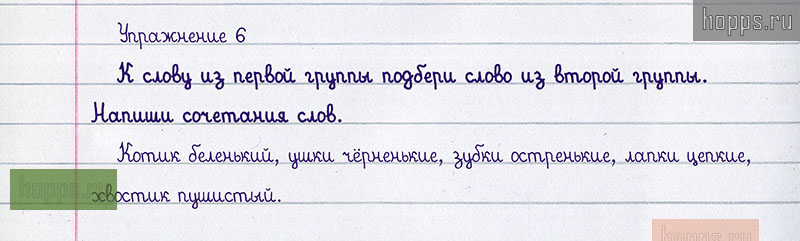 hopps.ru
Упражнение 6
К слову из первой группы подбери слово из второй группы.
Напиши сочетания слов.
Котик беленький, ушки чёрненькие, зубки остренькие, лапки цепкие,
хвостик пушистый.
hopps.ru
hopps.ru